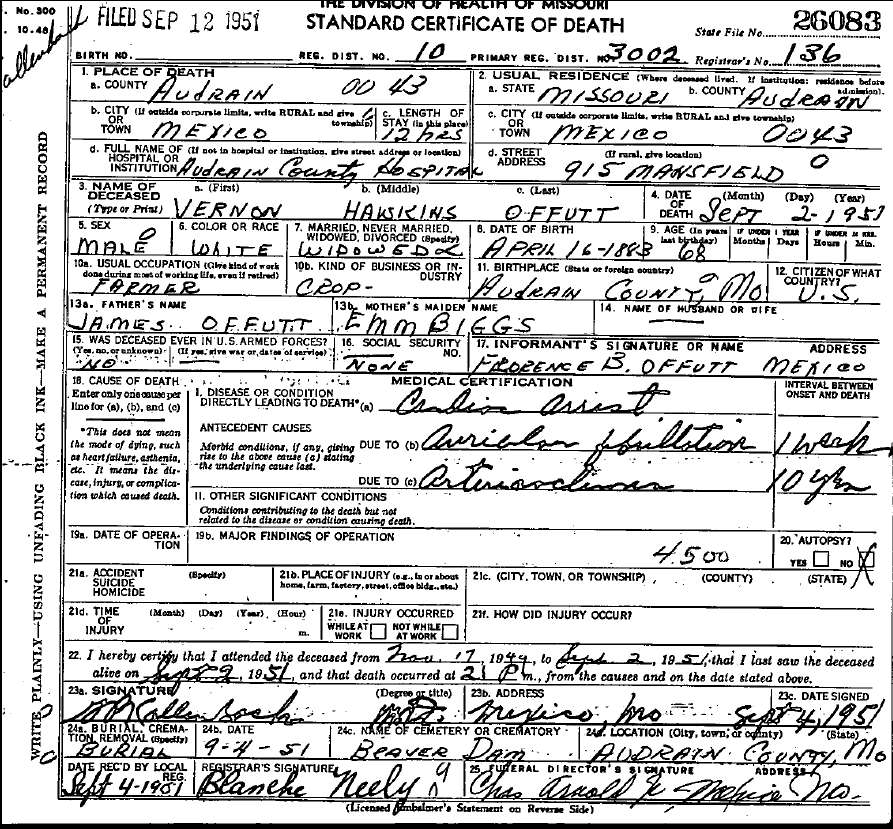 THE DIVISION OF HEALTH OF MISSOURI
No. 300
10-48
FILED SEP 12 1951
STANDARD CERTIFICATE OF DEATH
State File No. 26083
BIRTH NO. REG. DIST. NO. 10 PRIMARY REG. DIST. NO. 3002 Registrar's No. 136
1. PLACE OF DEATH
a. COUNTY AUDRAIN 0043
2. USUAL RESIDENCE (Where deceased lived. If institution: residence before admission).
a. STATE MISSOURI b. COUNTY AUDRAIN
b. CITY (If outside corporate limits, write RURAL and give township) OR TOWN MEXICO
c. LENGTH OF STAY (in this place) 12 hrs
c. CITY (If outside corporate limits, write RURAL and give township) OR TOWN MEXICO 0043
d. FULL NAME OF (If not in hospital or institution, give street address or location) HOSPITAL OR INSTITUTION AUDRAIN COUNTY HOSPITAL
d. STREET ADDRESS (If rural, give location) 915 MANSFIELD 0
3. NAME OF DECEASED (Type or Print)
a. (First) VERNON b. (Middle) HAWKINS c. (Last) OFFUTT
4. DATE OF DEATH (Month) (Day) (Year) SEPT 2-1951
5. SEX MALE 0
6. COLOR OR RACE WHITE
7. MARRIED, NEVER MARRIED, WIDOWED, DIVORCED (Specify) WIDOWED 2
8. DATE OF BIRTH APRIL 16-1883
9. AGE (In years last birthday) 68 IF UNDER 1 YEAR Months Days IF UNDER 24 HRS. Hours Min.
10a. USUAL OCCUPATION (Give kind of work done during most of working life, even if retired) FARMER
10b. KIND OF BUSINESS OR INDUSTRY CROP-
11. BIRTHPLACE (State or foreign country) AUDRAIN COUNTY, MO 0
12. CITIZEN OF WHAT COUNTRY? U.S.
13a. FATHER'S NAME JAMES OFFUTT
13b. MOTHER'S MAIDEN NAME EMM BIGGS
14. NAME OF HUSBAND OR WIFE
15. WAS DECEASED EVER IN U.S. ARMED FORCES? (Yes, no, or unknown) (If yes, give war or dates of service) NO
16. SOCIAL SECURITY NO. NONE
17. INFORMANT'S SIGNATURE OR NAME ADDRESS
FLORENCE B. OFFUTT MEXICO
18. CAUSE OF DEATH
Enter only one cause per line for (a), (b), and (c)
*This does not mean the mode of dying, such as heart failure, asthenia, etc. It means the disease, injury, or complication which caused death.
MEDICAL CERTIFICATION
INTERVAL BETWEEN ONSET AND DEATH
I. DISEASE OR CONDITION DIRECTLY LEADING TO DEATH* (a) Cardiac arrest
ANTECEDENT CAUSES
Morbid conditions, if any, giving rise to the above cause (a) stating the underlying cause last.
DUE TO (b) Auricular fibrillation 1 week
DUE TO (c) Arteriosclerosis 10 yrs
II. OTHER SIGNIFICANT CONDITIONS
Conditions contributing to the death but not related to the disease or condition causing death.
19a. DATE OF OPERATION
19b. MAJOR FINDINGS OF OPERATION
4500
20. AUTOPSY? YES NO X
21a. ACCIDENT SUICIDE HOMICIDE (Specify)
21b. PLACE OF INJURY (e.g., in or about home, farm, factory, street, office bldg., etc.)
21c. (CITY, TOWN, OR TOWNSHIP) (COUNTY) (STATE)
21d. TIME OF INJURY (Month) (Day) (Year) (Hour) m.
21e. INJURY OCCURRED WHILE AT WORK NOT WHILE AT WORK
21f. HOW DID INJURY OCCUR?
22. I hereby certify that I attended the deceased from Nov. 17 1949, to Sept 2, 1951, that I last saw the deceased
alive on Sept 2, 1951, and that death occurred at 2 P m., from the causes and on the date stated above.
23a. SIGNATURE (Degree or title) M.D.
23b. ADDRESS Mexico, Mo
23c. DATE SIGNED Sept 4, 1951
24a. BURIAL, CREMATION, REMOVAL (Specify) BURIAL
24b. DATE 9-4-51
24c. NAME OF CEMETERY OR CREMATORY BEAVER DAM
24d. LOCATION (City, town, or county) (State) AUDRAIN COUNTY, MO
DATE REC'D BY LOCAL REG. Sept 4-1951
REGISTRAR'S SIGNATURE Blanche Neely
25. FUNERAL DIRECTOR'S SIGNATURE ADDRESS
Chas Arnold Jr Mexico Mo.
(Licensed Embalmer's Statement on Reverse Side)
WRITE PLAINLY—USING UNFADING BLACK INK—MAKE A PERMANENT RECORD